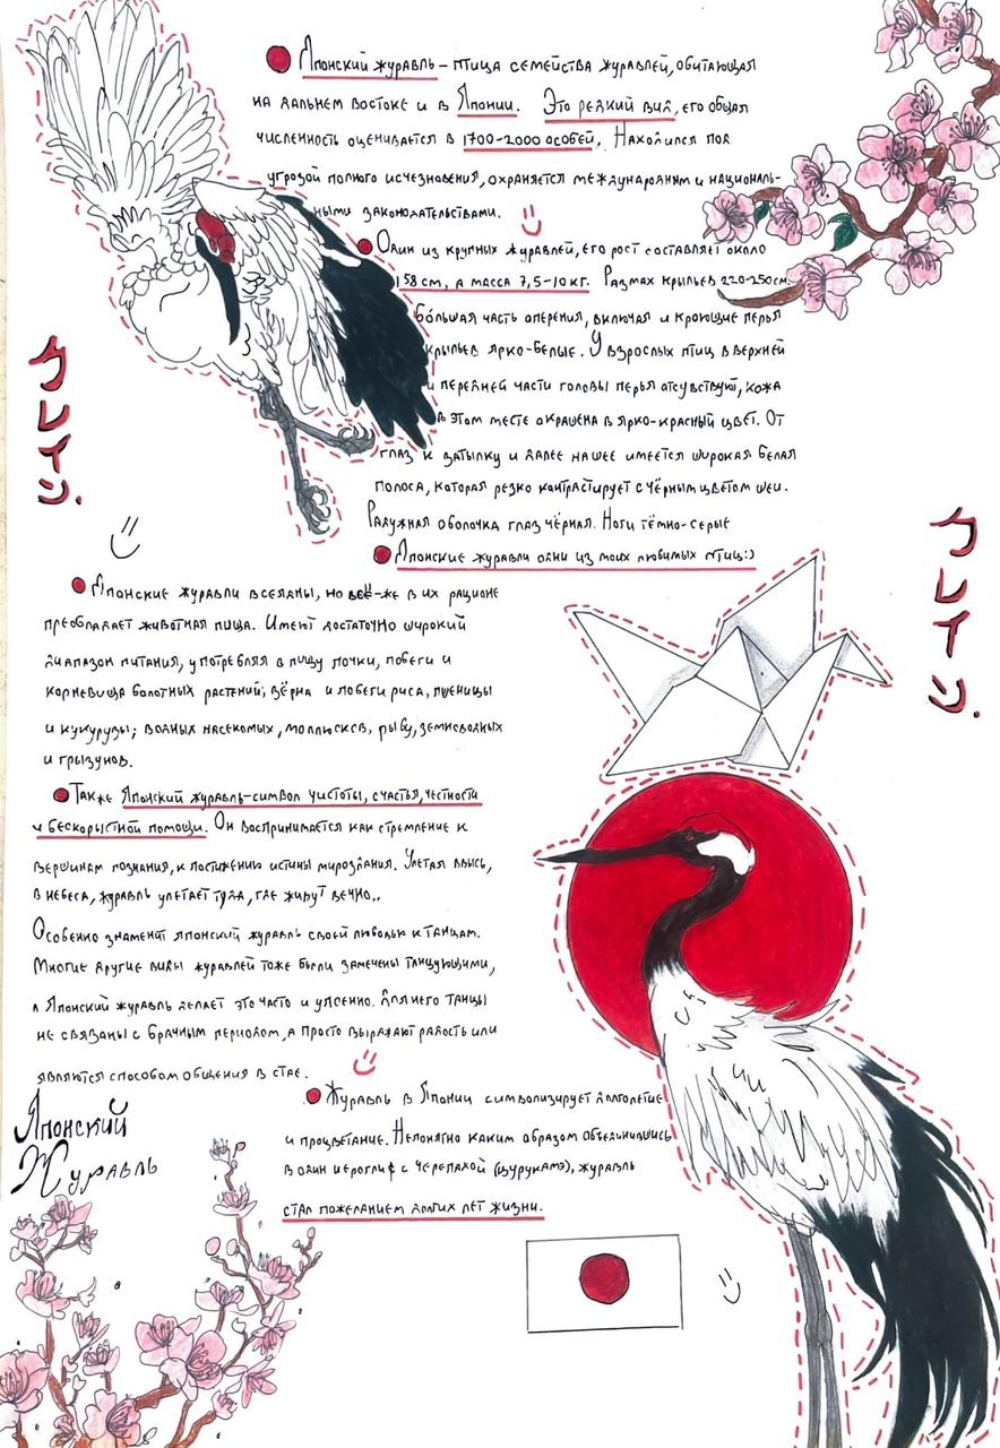 Японский журавль – птица семейства журавлей, обитающая
на дальнем Востоке и в Японии. Это редкий вид, его общая
численность оценивается в 1700-2000 особей. Находился под
угрозой полного исчезновения, охраняется международным и националь-
ными законодательствами.
Один из крупных журавлей, его рост составляет около
158 см, а масса 7,5-10 кг. Размах крыльев 220-250 см.
Большая часть оперения, включая и кроющие перья
крыльев ярко-белые. У взрослых птиц в верхней
и передней части головы перья отсутствуют, кожа
в этом месте окрашена в ярко-красный цвет. От
глаз к затылку и далее на шее имеется широкая белая
полоса, которая резко контрастирует с чёрным цветом шеи.
Радужная оболочка глаз чёрная. Ноги тёмно-серые
Японские журавли одни из моих любимых птиц:)
クレイン.
クレイン.
Японские журавли всеядны, но всё-же в их рационе
преобладает животная пища. Имеют достаточно широкий
диапазон питания, употребляя в пищу почки, побеги и
корневища болотных растений; зёрна и побеги риса, пшеницы
и кукурузы; водных насекомых, моллюсков, рыбу, земноводных
и грызунов.
Также Японский журавль-символ чистоты, счастья, честности
и бескорыстной помощи. Он воспринимается как стремление к
вершинам познания, к постижению истины мироздания. Улетая ввысь,
в небеса, журавль улетает туда, где живут вечно..
Особенно знаменит японский журавль своей любовью к танцам.
Многие другие виды журавлей тоже были замечены танцующими,
а Японский журавль делает это часто и умело. Для него танцы
не связаны с брачным периодом, а просто выражают радость или
являются способом общения в стае.
Японский
Журавль
Журавль в Японии символизирует долголетие
и процветание. Непонятно каким образом объединившись
в один иероглиф с черепахой (цурукамэ), журавль
стал пожеланием долгих лет жизни.